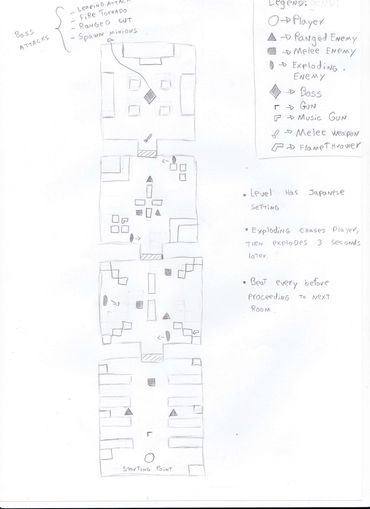 Boss
Attacks
- Leaping Attack
- Fire Tornado
- Ranged Cut
- Spawn Minions
Legend:
-> Player
-> Ranged Enemy
-> Melee Enemy
-> Exploding
Enemy
-> Boss
-> Gun
-> Music Gun
-> Melee Weapon
-> Flamethrower
• Level Has Japanese
Setting
• Exploding chases Player,
then explodes 3 seconds
later.
• Beat every before
proceeding to next
room.
Starting Point